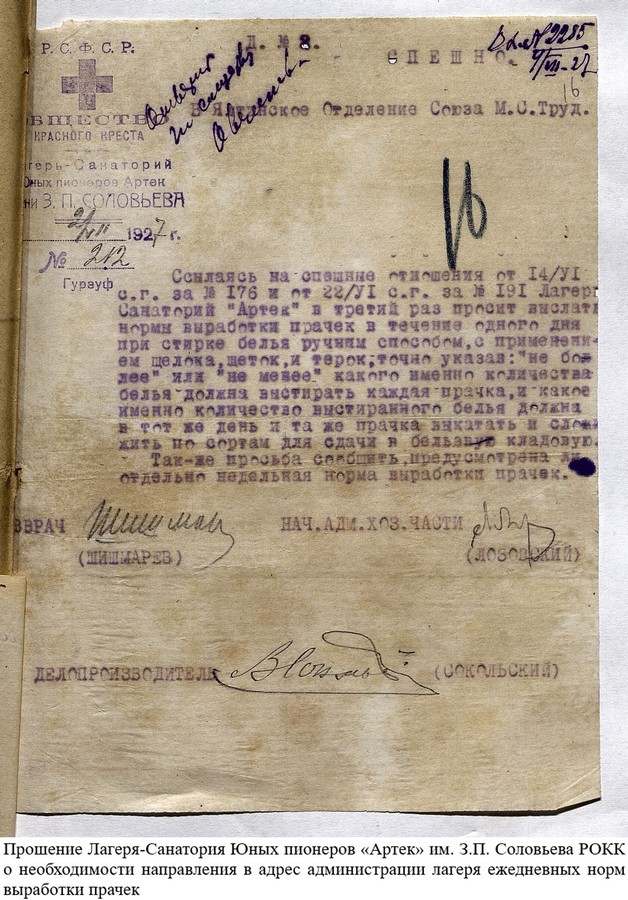 Р. С. Ф. С. Р.
Д. № 8.
СПЕШНО.
Вх. № 2285
16
ОБЩЕСТВ
КРАСНОГО КРЕСТА
В Ялтинское Отделение Союза М.С.Труд.
герь-Санаторий
Юных пионеров Артек
ни З. П. СОЛОВЬЕВА
1927 г.
№ 212
Гурзуф
16
Ссылаясь на спешние отношения от 14/УІ
с.г. за № 176 и от 22/УІ с.г. за № 191 Лагерь
Санаторий "Артек" в третий раз просит выслать
нормы выработки прачек в течение одного дня
при стирке белья ручним способом,с применени-
ем щелока,щеток,и терок;точно указав:"не бо-
лее" или "не менее" какого именно количества
белья должна выстирать каждая прачка,и какое
именно количество выстиранного белья должна
в тот же день и та же прачка выкатать и сло
жить по сортам для сдачи в бельевую кладовую.
Так-же просьба сообщить,предусмотрена ли
отдельно недельная норма выработки прачек.
ВРАЧ
НАЧ.АДМ.ХОЗ.ЧАСТИ
(ШИШМАРЕВ)
(ЛОЗОВСКИЙ)
ДЕЛОПРОИЗВОДИТЕЛЬ
(СОКОЛЬСКИЙ)
Прошение Лагеря-Санатория Юных пионеров «Артек» им. З.П. Соловьева РОКК
о необходимости направления в адрес администрации лагеря ежедневных норм
выработки прачек